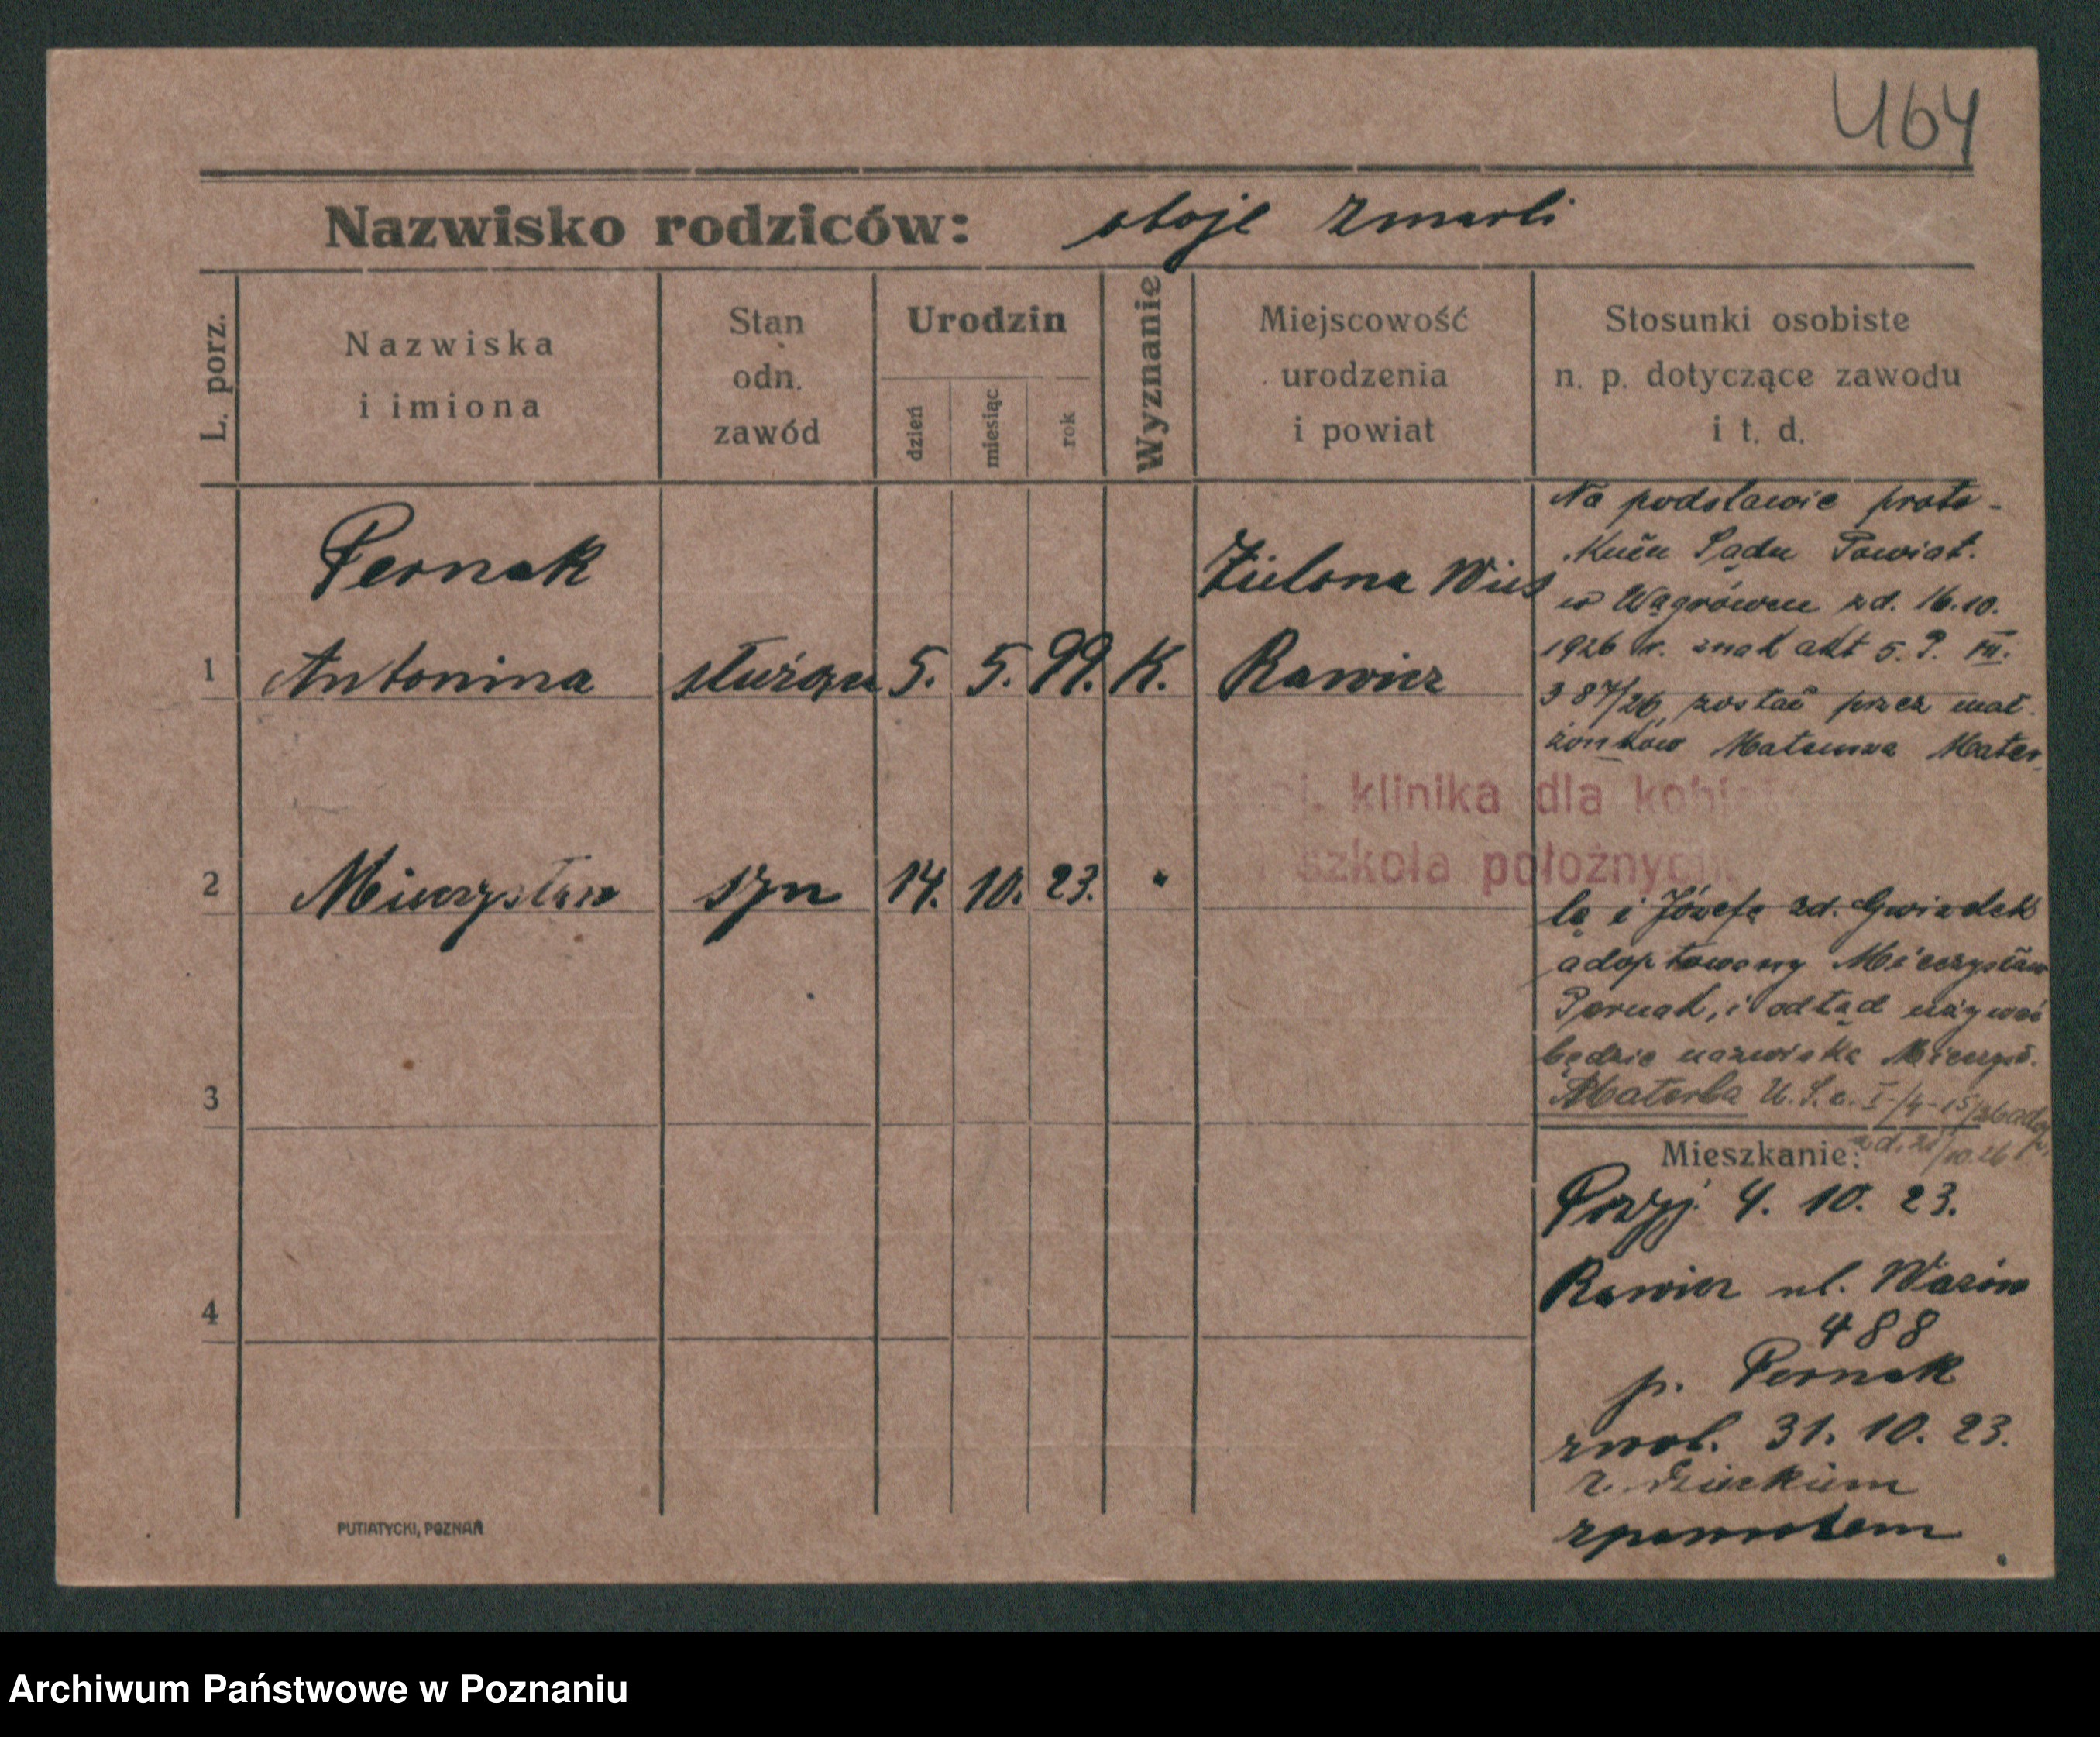 464
Nazwisko rodziców: oboje zmarli
L. porz.
Nazwiska
i imiona
Stan
odn.
zawód
Urodzin
dzień
miesiąc
rok
Wyznanie
Miejscowość
urodzenia
i powiat
Stosunki osobiste
n. p. dotyczące zawodu
i t. d.
1
Pernak
Antonina
służąca
5. 5. 99. K.
Zielona Wieś
Rawicz
2
Mieczysław
syn
14. 10. 23. "
3
4
Na podstawie proto-
kułu Sądu Powiat.
w Wągrówcu zd. 16.10.
1926 r. znak akt 5. P. VII.
387/26, został przez mał-
żonków Mateusza Mater
klinika dla kobiet
szkoła położnych
lę i Józefę zd. Gwiadek
adoptowany Mieczysław
Pernak, i odtąd używać
będzie nazwiska Mieczysł.
Materla U.S.C. I/4-15/26 adop.
zd. 21/10.26
Mieszkanie:
Przyj. 4. 10. 23.
Rawicz ul.
488
p. Pernak
zwol. 31. 10. 23.
z dzieckiem
zpowrotem
PUTIATYCKI, POZNAŃ
Archiwum Państwowe w Poznaniu